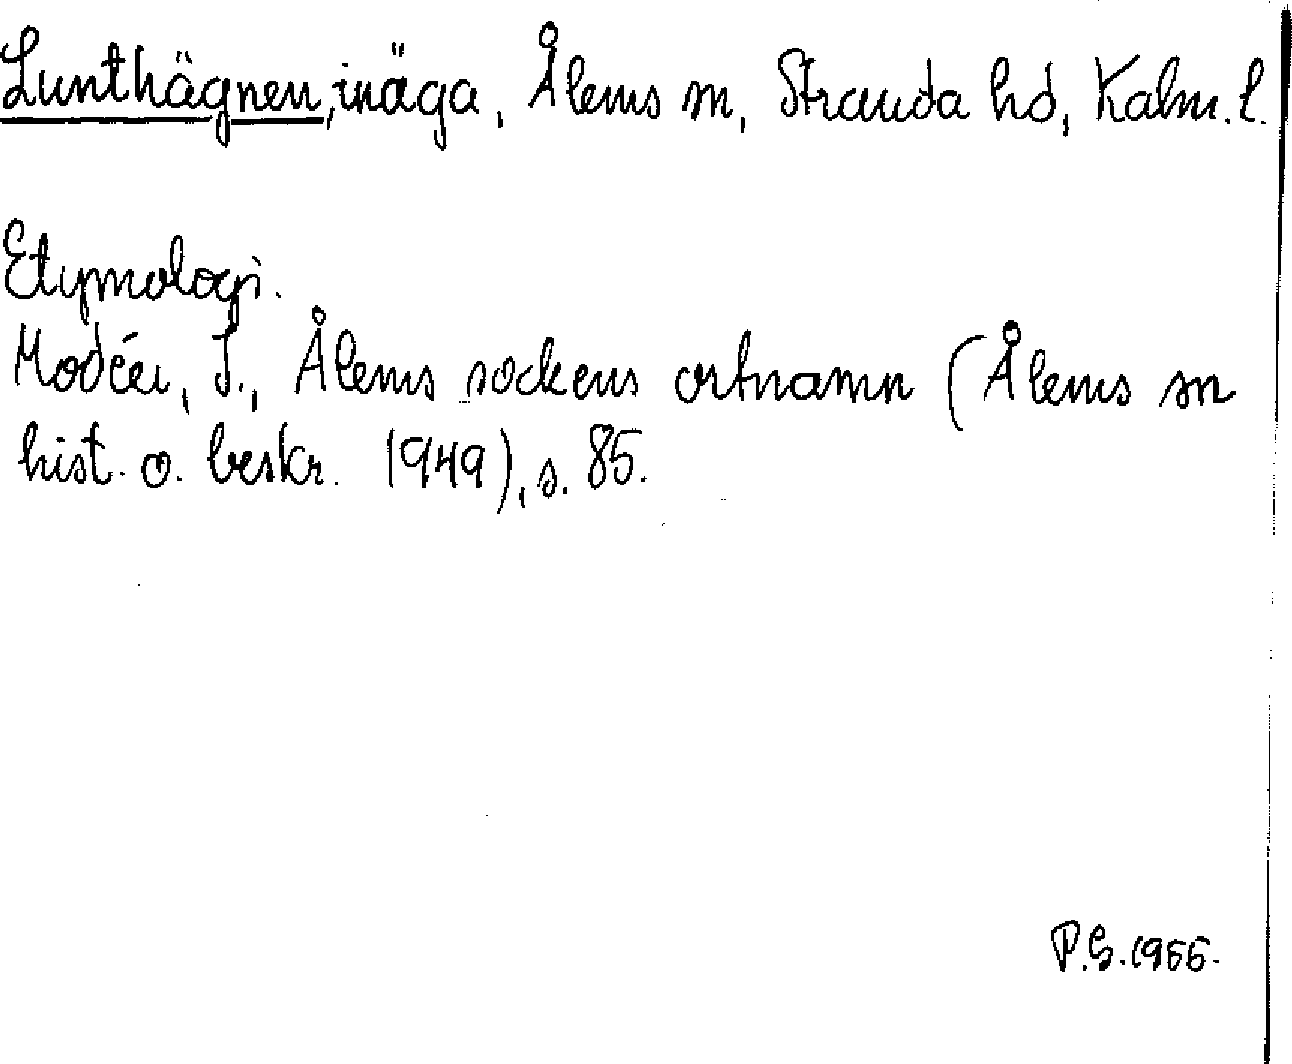 Lunthägnen, inäga, Ålems sn, Stranda hd, Kalm. l.
Etymologi.
Modéer, I., Ålems sockens ortnamn (Ålems sn
hist. o. beskr. 1949), s. 85.
P.G. 1966.